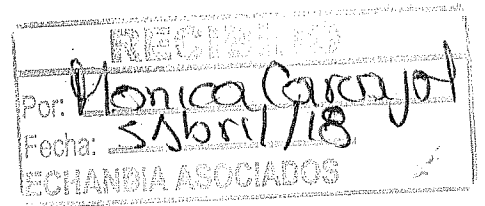 RECIBIDO
Por: Monica Carvajal
Fecha: 5 Abril / 18
ECHANDIA ASOCIADOS